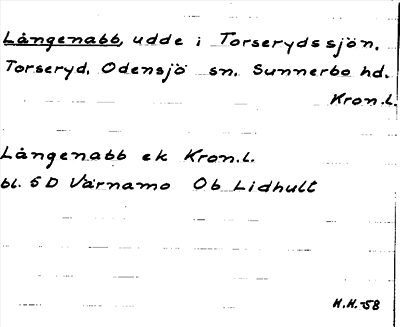 Långenabb, udde i Torserydssjön.
Torseryd, Odensjö sn. Sunnerbo hd.
Kron.l.
Långenabb ek Kron.l.
bl. 5 D Värnamo Ob Lidhult
H.H.-58